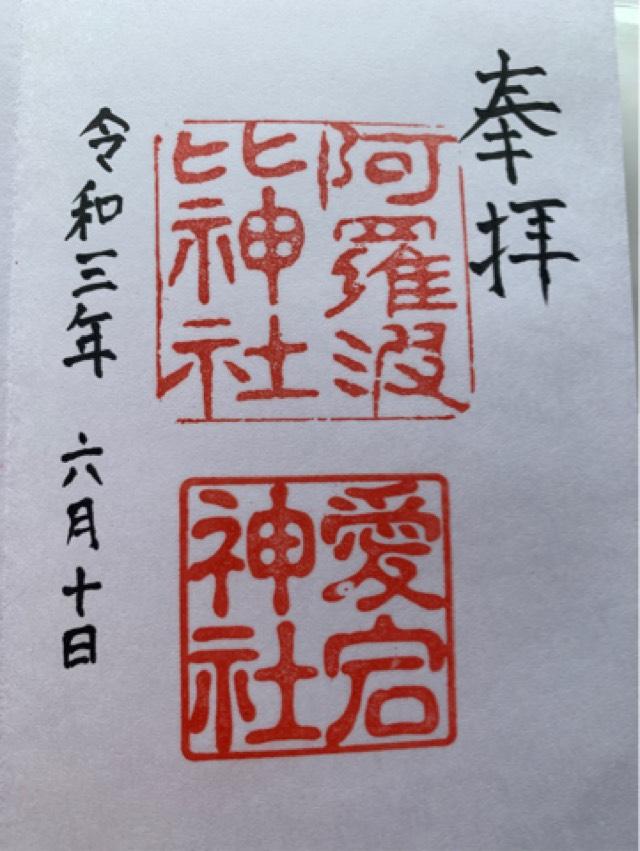 奉拝
阿羅波
比神社
愛宕
神社
令和三年 六月十日